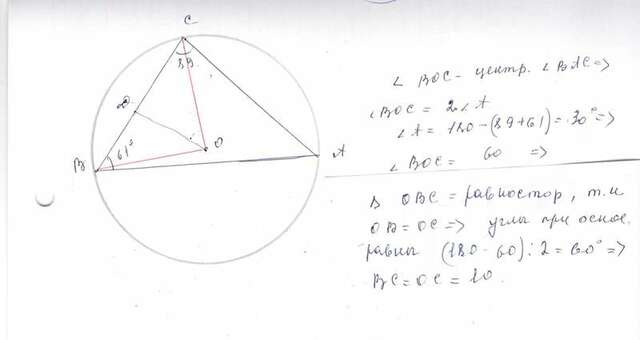 C
89
D
61°
O
B
A
∠ BOC - центр. ∠ BAC =>
∠BOC = 2∠A
∠A = 180-(89+61) = 30° =>
∠BOC = 60 =>
Δ OBC = равностор, т.к
OB = OC => углы при основ.
равны (180-60):2 = 60° =>
BC = OC = 10